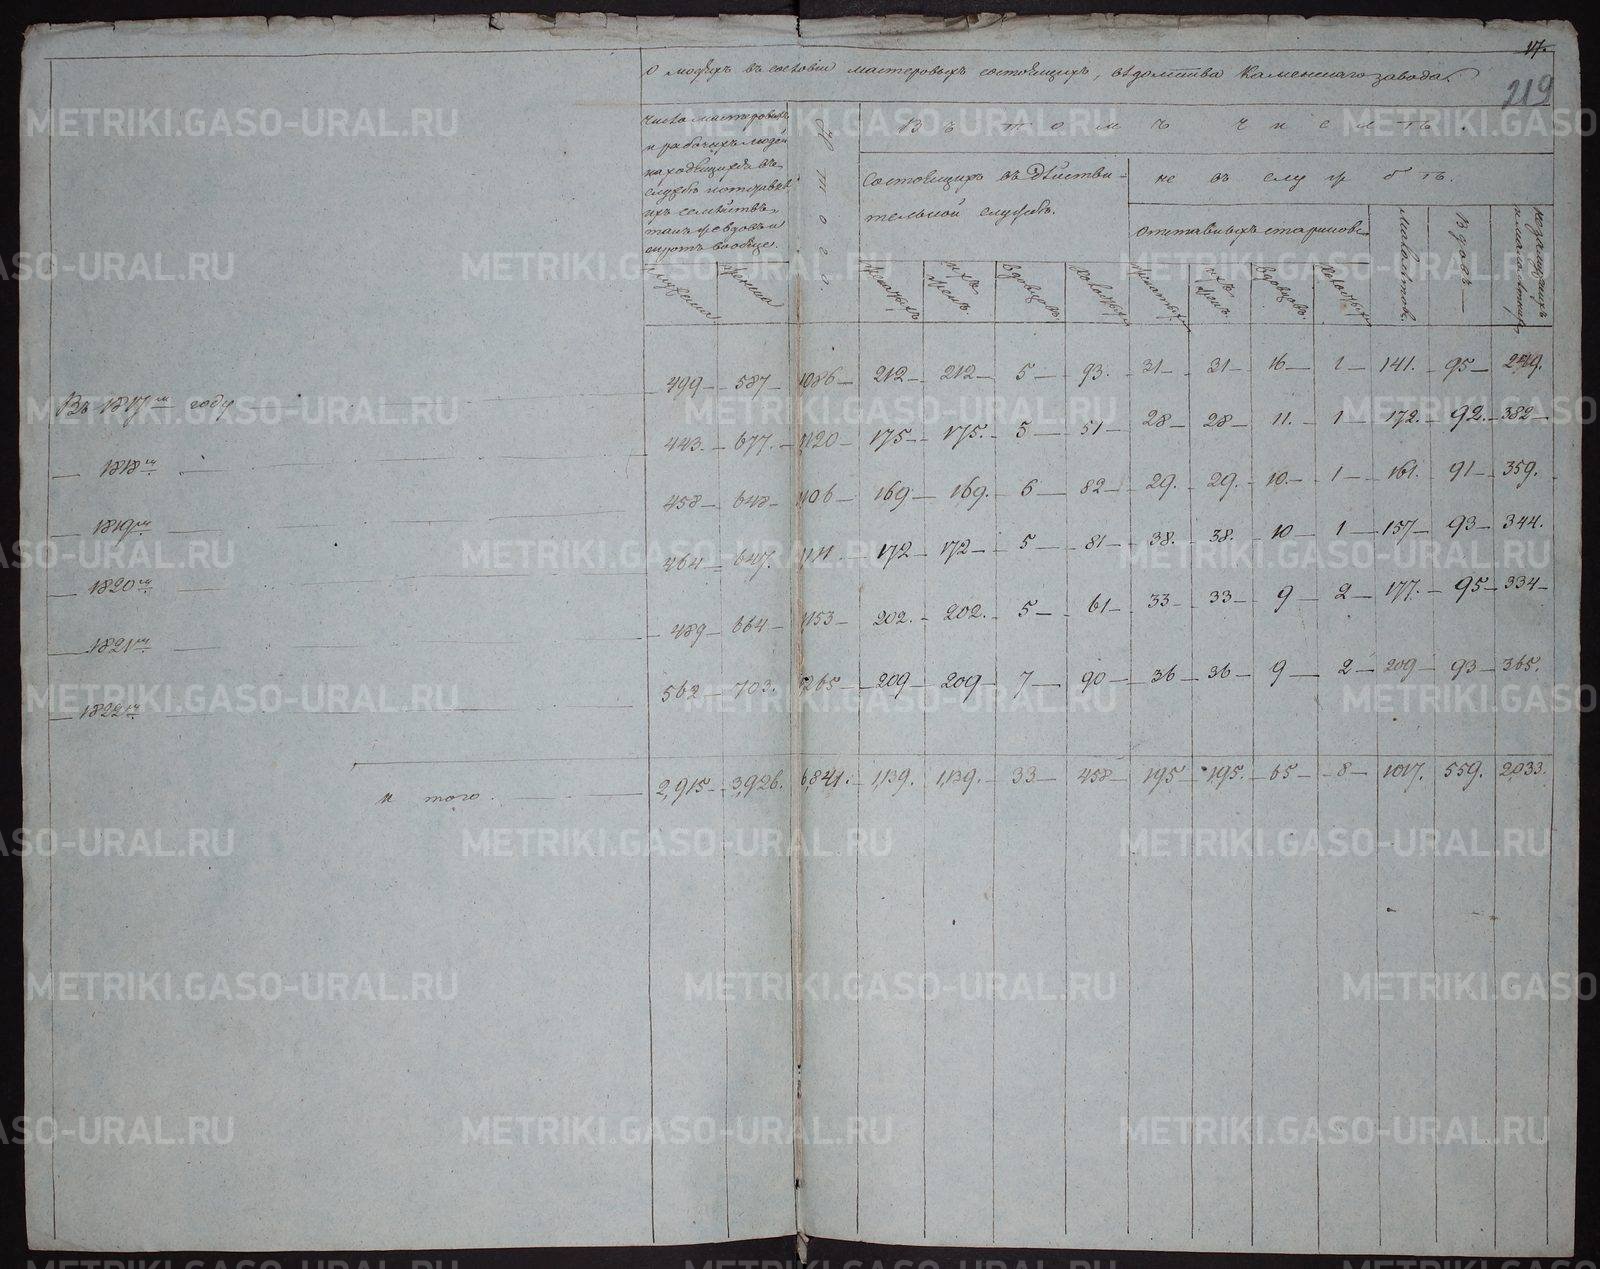 17.
219
О людяхъ въ сословіи мастеровыхъ состоящихъ, вѣдомства Каменскаго завода.
Число мастеровыхъ
и рабочихъ людей
находящихся въ
службѣ и отставкѣ
ихъ семействъ,
такъ же вдовъ и
сиротъ вообще.
мужеска
женска
Итого.
Въ томъ числѣ.
Состоящихъ въ дѣйстви-
тельной службѣ.
женатыхъ
ихъ женъ
вдовцовъ
холостыхъ
не въ службѣ.
отставныхъ стариковъ
женатыхъ
ихъ женъ
вдовцовъ.
холостыхъ
малолѣтков.
Вдовъ
Въ 1817м году 499 587 1086 212 212 5 93. 31 31 16 1 141. 95 249.
1818м 443. 677. 1120 175 175. 5 51 28 28 11. 1 172. 92. 382
1819м 458 648 1106 169 169. 6 82 29. 29. 10. 1 161. 91 359.
1820м 464 647. 1111. 172 172 5 81 38. 38. 10 1 157 93 344.
1821м 489 664 1153 202. 202. 5 61 33 33 9 2 177. 95 334
1822м 562 703. 1265 209 209 7 90 36 36 9 2 209 93 365.
и того. 2,915 3,926. 6,841. 1,139. 1,139. 33 458 195 195. 65 8 1017. 559. 2,033.
METRIKI.GASO-URAL.RU